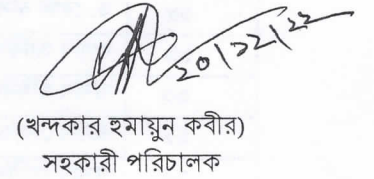 ২০/১২/২২
(খন্দকার হুমায়ুন কবীর)
সহকারী পরিচালক